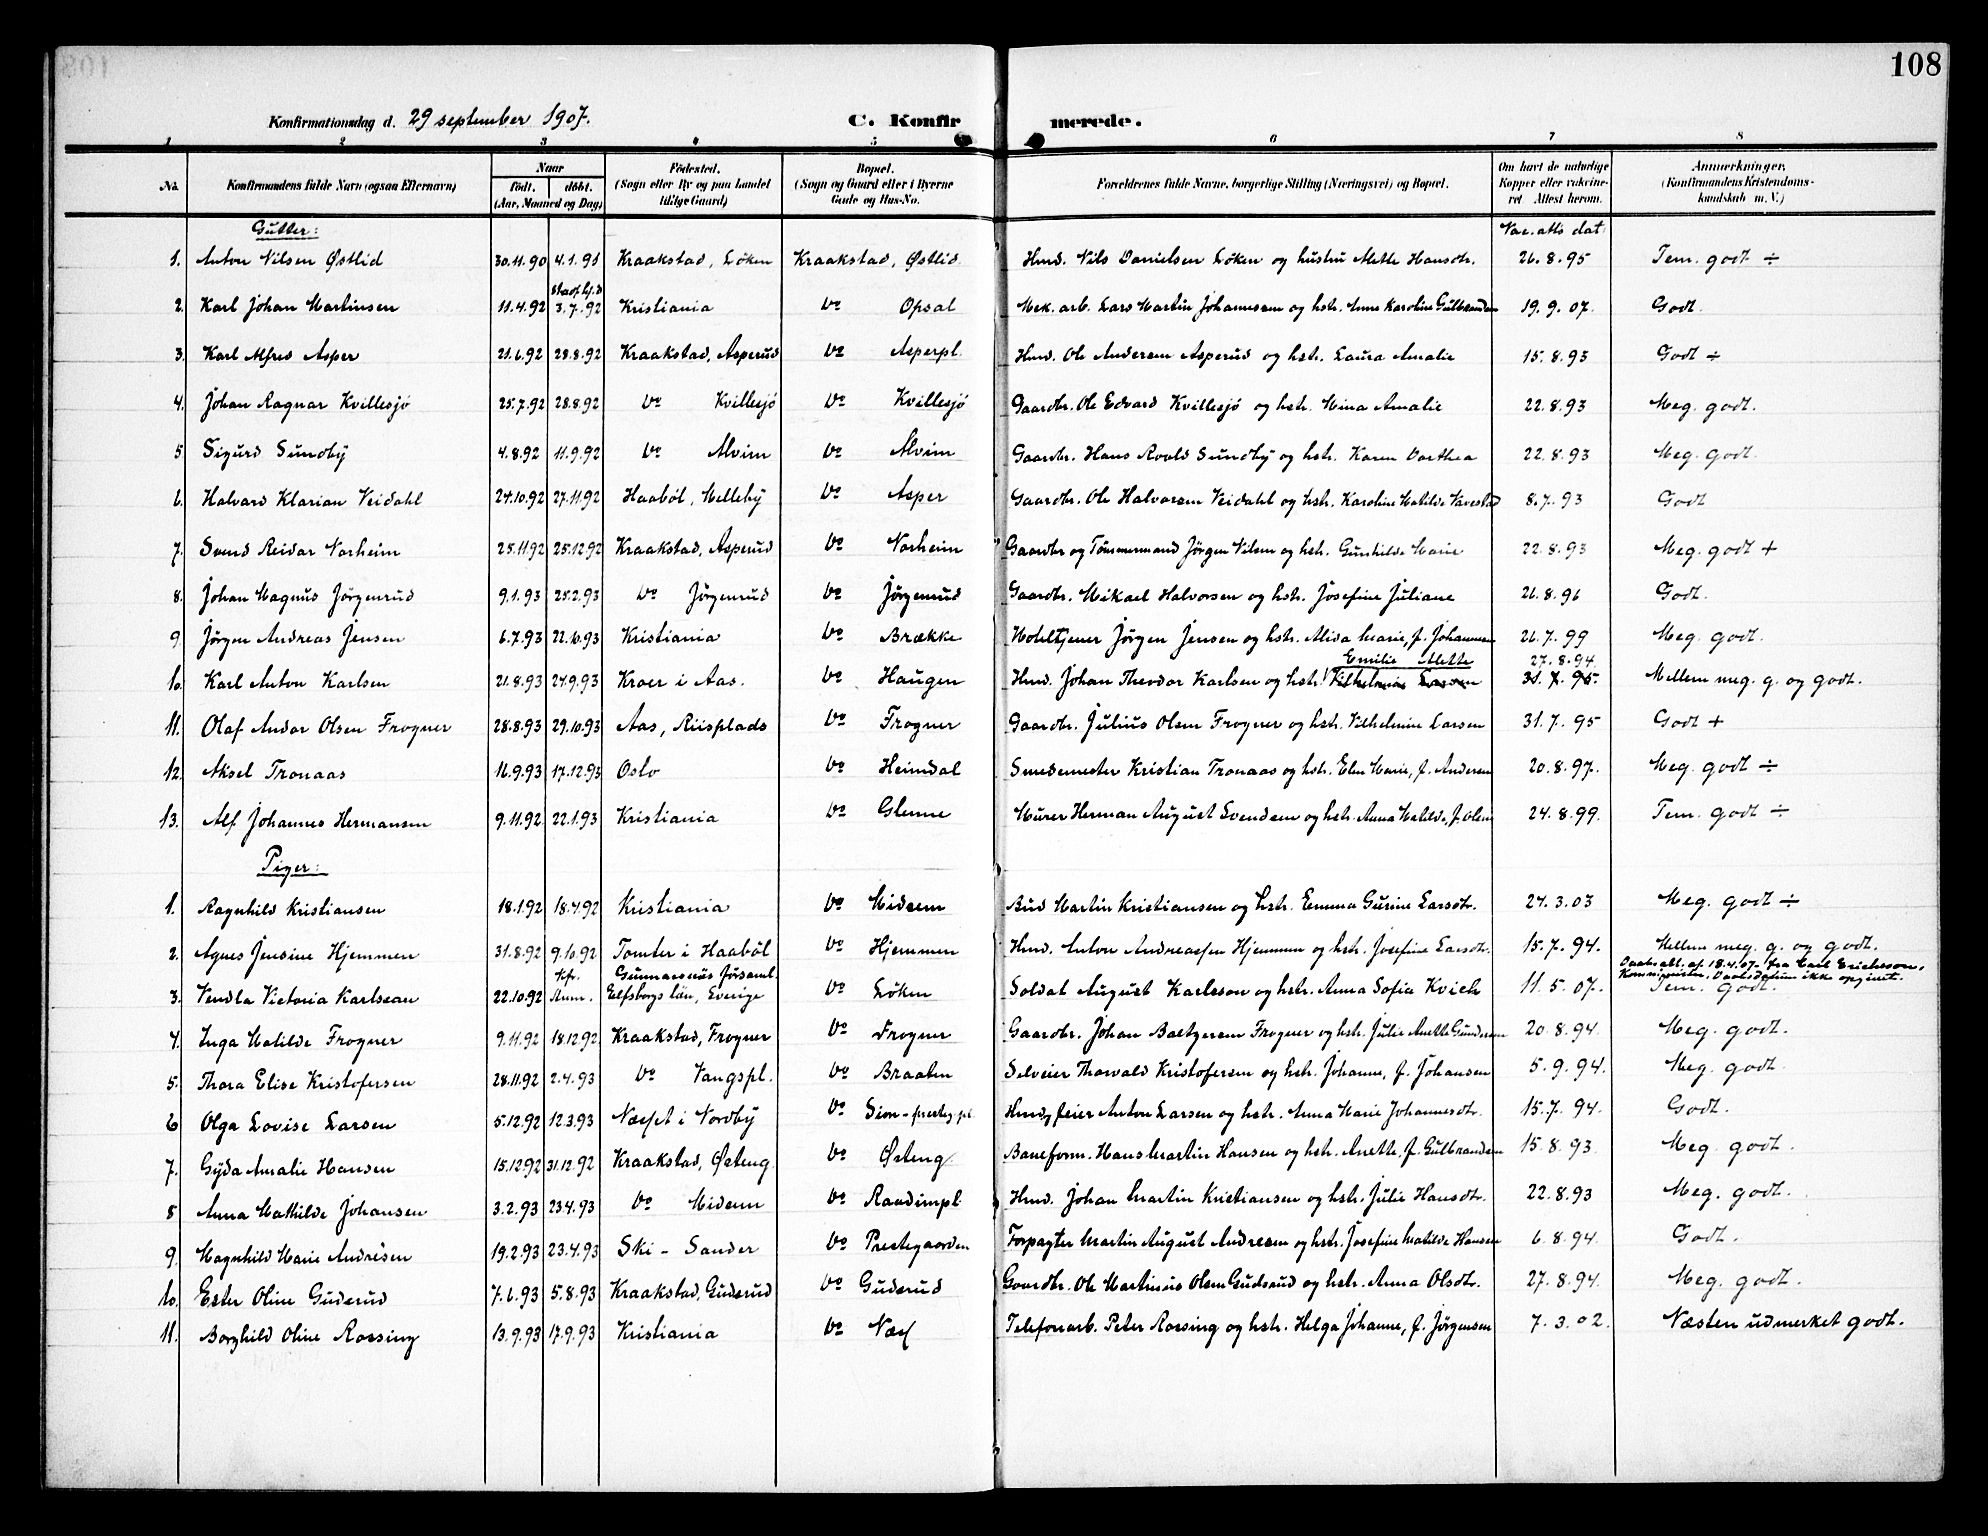 108
Konfirmationsdag d. 29 september 1907.
C. Konfirmerede.
1 2 3 4 5 6 7 8
No. Konfirmandens fulde Navn (ogsaa Efternavn) Naar født. døbt. (Aar, Maaned og Dag) Fødested. (Sogn eller By og paa Landet tillige Gaard) Bopæl. (Sogn og Gaard eller i Byerne Gade og Hus-No. Forældrenes fulde Navne, borgerlige Stilling (Næringsvei) og Bopæl. Om havt de naturlige Kopper eller vakcineret. Attest herom. Anmerkninger, (Konfirmandens Kristendomskundskab m. V.)
Gutter: Vac. atts dat.
1. Anton Nilsen Østlid 30.11.90 4.1.91 Kraakstad, Löken Kraakstad, Østlid Hmd. Nils Danielsen Löken og hustru Mette Hansdtr. 26.8.95 Tem. godt ÷
2. Karl Johan Martinsen 11.4.92 3.7.92 Kristiania Do Opsal Mek. arb. Lars Martin Johannesen og hstr. Anne Karoline Gulbrandsen 19.9.07. Godt.
3. Karl Alfred Asper 21.6.92 28.8.92 Kraakstad, Asperud Do Asperpl. Hmd. Ole Andersen Asperud og hstr. Laura Amalie 15.8.93 Godt ÷
4. Johan Ragnar Kvillesjö 25.7.92 28.8.92 Do Kvillesjö Do Kvillesjö Gaardbr. Ole Edvard Kvillesjö og hstr. Mina Amalie 22.8.93 Meg. godt.
5 Sigurd Sundby 4.8.92 11.9.92 Do Alvim Do Alvim Gaardbr. Hans Roald Sundby og hstr. Karen Dorthea 22.8.93 Meg. godt.
6. Halvard Klarian Veidahl 24.10.92 27.11.92 Haaböl, Melleby Do Asper Gaardbr. Ole Halvorsen Veidahl og hstr. Karoline Matilde 8.7.93 Godt
7. Svend Reidar Norheim 25.11.92 25.12.92 Kraakstad, Asperud Do Norheim Gaardbr og Tömmermand Jörgen Nilsen og hstr. Gunhilde Marie 22.8.93 Meg. godt +
8. Johan Magnus Jörgenrud 9.1.93 25.2.93 Do Jörgenrud Do Jörgenrud Gaardbr. Mikael Halvorsen og hstr. Josefine Juliane 26.8.96 Godt.
9 Jörgen Andreas Jensen 6.7.93 22.10.93 Kristiania Do Brække Hoteltjener Jörgen Jensen og hstr. Alida Marie, f. Johannesen 26.7.99 Meg. godt.
Emilie Mette 27.8.94.
10. Karl Anton Karlsen 21.8.93 24.9.93 Kroer i Aas. Do Haugen Hmd. Johan Theodor Karlsen og hstr. Vilhelmine Larsen 31.7.95. Mellem meg. g. og godt.
11. Olaf Andor Olsen Frogner 28.8.93 29.10.93 Aas, Riisplads Do Frogner Gaardbr. Julius Olsen Frogner og hstr. Vilhelmine Larsen 31.7.95 Godt +
12. Aksel Tronaas 16.9.93 17.12.93 Oslo Do Heimdal Smedemester Kristian Tronaas og hstr. Elen Marie, f. Andersen 20.8.97. Meg. godt ÷
13. Alf Johannes Hermansen 9.11.92 22.1.93 Kristiania Do Glenne Murer Herman August Svendsen og hstr. Anna Matilde, f. Olsen 24.8.99. Tem. godt ÷
Piger:
1. Ragnhild Kristiansen 18.1.92 18.4.92 Kristiania Do Midsem Bud Martin Kristiansen og hstr. Emma Gurine Larsdtr. 24.3.03 Meg. godt ÷
2. Agnes Jensine Hjemmen 31.8.92 9.10.92 Tomter i Haaböl Do Hjemmen Hmd. Anton Andreassen Hjemmen og hstr. Josefine Larsdtr. 15.7.94. Mellem meg. g. og godt.
Daabsatt. af 18.4.07. fra Carl Erichsson,
Kommunister, Daabsdatum ikke opgivet.
3. Vendla Victoria Karlsson 22.10.92 kfr. Anm. Gunnarsnäs Församl. Elfsborgs län, Sverige Do Löken Soldat August Karlsson og hstr. Anna Sofia Kvick 11.5.07. Tem. godt.
4. Inga Matilde Frogner 9.11.92 18.12.92 Kraakstad, Frogner Do Frogner Gaardbr. Johan Baltzersen Frogner og hstr. Julie Anette Gundersen 20.8.94. Meg. godt.
5. Thora Elise Kristofersen 28.11.92 2.4.93 Do Vangspl. Do Braaten Selveier Thorvald Kristofersen og hstr. Johanne, f. Johansen 5.9.94. Meg. godt.
6 Olga Lovise Larsen 5.12.92 12.3.93 Næset i Nordby Do Sion-prestg.pl. Hmd, feier Anton Larsen og hstr. Anna Marie Johannesdtr. 15.7.94. Godt.
7. Gyda Amalie Hansen 15.12.92 31.12.92 Kraakstad, Østeng. Do Østeng Baneform. Hans Martin Hansen og hstr. Anette, f. Gulbrandsen 15.8.93. Meg. godt.
8 Anna Mathilde Johansen 3.2.93 23.4.93 Do Midsem Do Raadimpl. Hmd. Johan Martin Kristiansen og hstr. Julie Hansdtr. 22.8.93 Meg. godt.
9. Magnhild Marie Andrésen 19.2.93 23.4.93 Ski - Sander Do Prestegaarden Forpagter Martin August Andresen og hstr. Josefine Matilde Hansen 6.8.94. Godt.
10. Ester Oline Guderud 7.6.93 5.8.93 Kraakstad, Guderud Do Guderud Gaardbr. Ole Martinius Olsen Guderud og hstr. Anna Olsdtr. 27.8.94. Meg. godt.
11. Borghild Oline Rossing 13.9.93 17.9.93 Kristiania Do Næs Telefonarb. Peter Rossing og hstr. Helga Johanne, f. Jörgensen 7.3.02. Næsten udmerket godt.